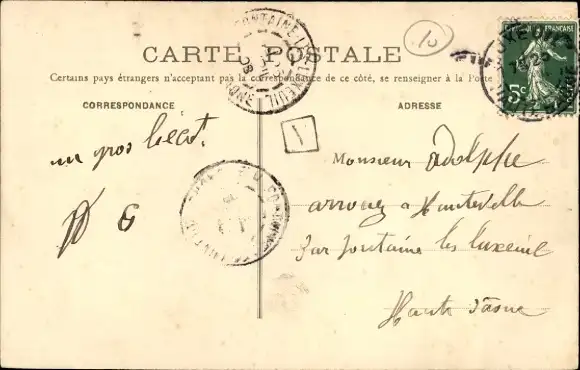 CARTE POSTALE
Certains pays étrangers n'acceptant pas la correspondance de ce côté, se renseigner à la Poste
CORRESPONDANCE
ADRESSE
10
5c
FONTAINE-L-LUXEUIL
1
un gros
Monsieur Adolphe
à Hauteville
Par fontaine les luxeuil
Haute Saone